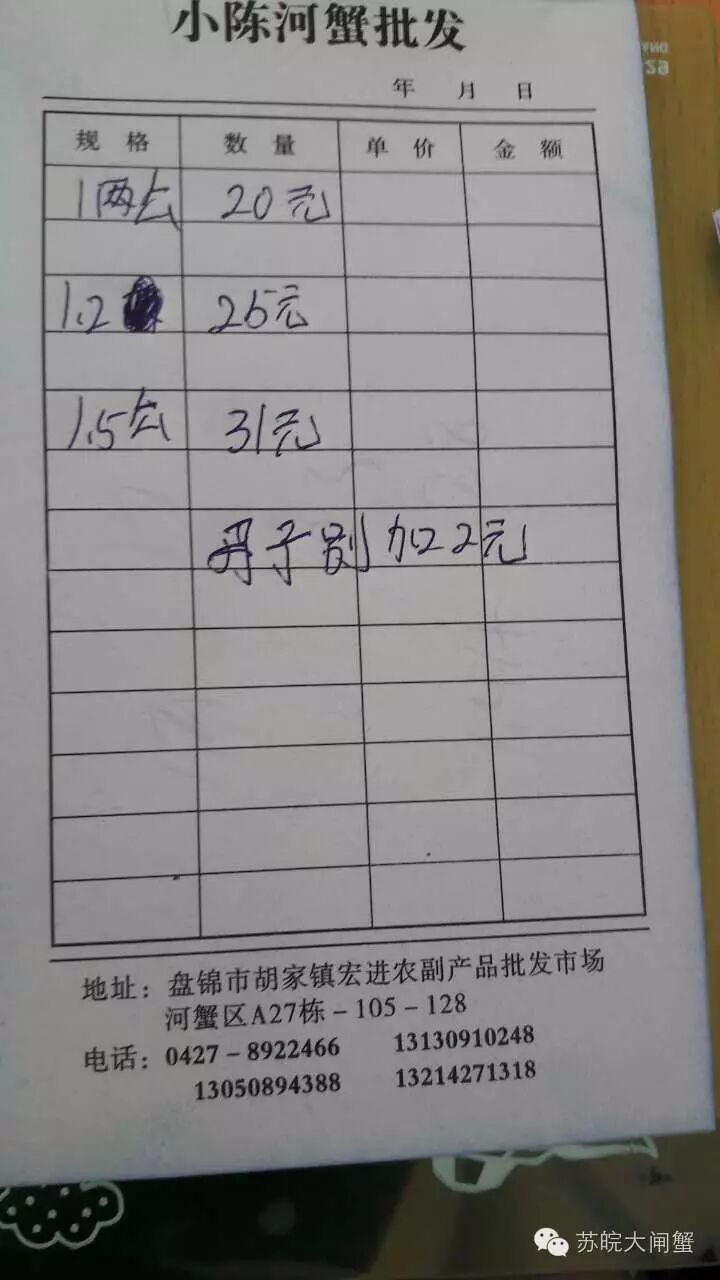 小陈河蟹批发
年 月 日
规 格 数 量 单 价 金 额
1两公 20元
1.2 25元
1.5公 31元
子 加2元
地址：盘锦市胡家镇宏进农副产品批发市场
河蟹区A27栋－105－128
电话：0427－8922466 13130910248
13050894388 13214271318
苏皖大闸蟹